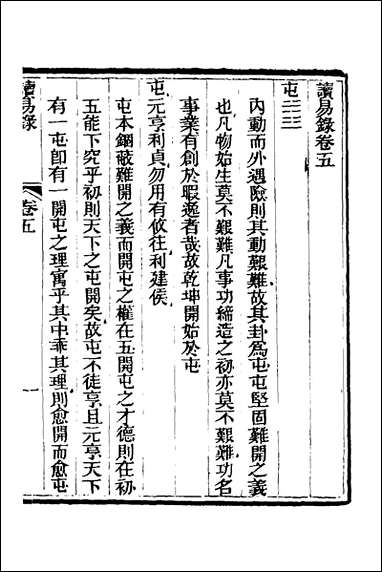 讀易錄卷五
屯䷂
內動而外遇險則其動艱難故其卦爲屯屯堅固難開之義
也凡物始生莫不艱難凡事功締造之初亦莫不艱難功名
事業有創於暇逸者哉故乾坤開始於屯
屯元亨利貞勿用有攸往利建侯
屯本錮蔽難開之義而開屯之權在五開屯之才德則在初
五能下究乎初則天下之屯開矣故屯不徒亨且元亨天下
有一屯卽有一開屯之理寓乎其中乖其理則愈開而愈屯
讀易錄
卷五
一